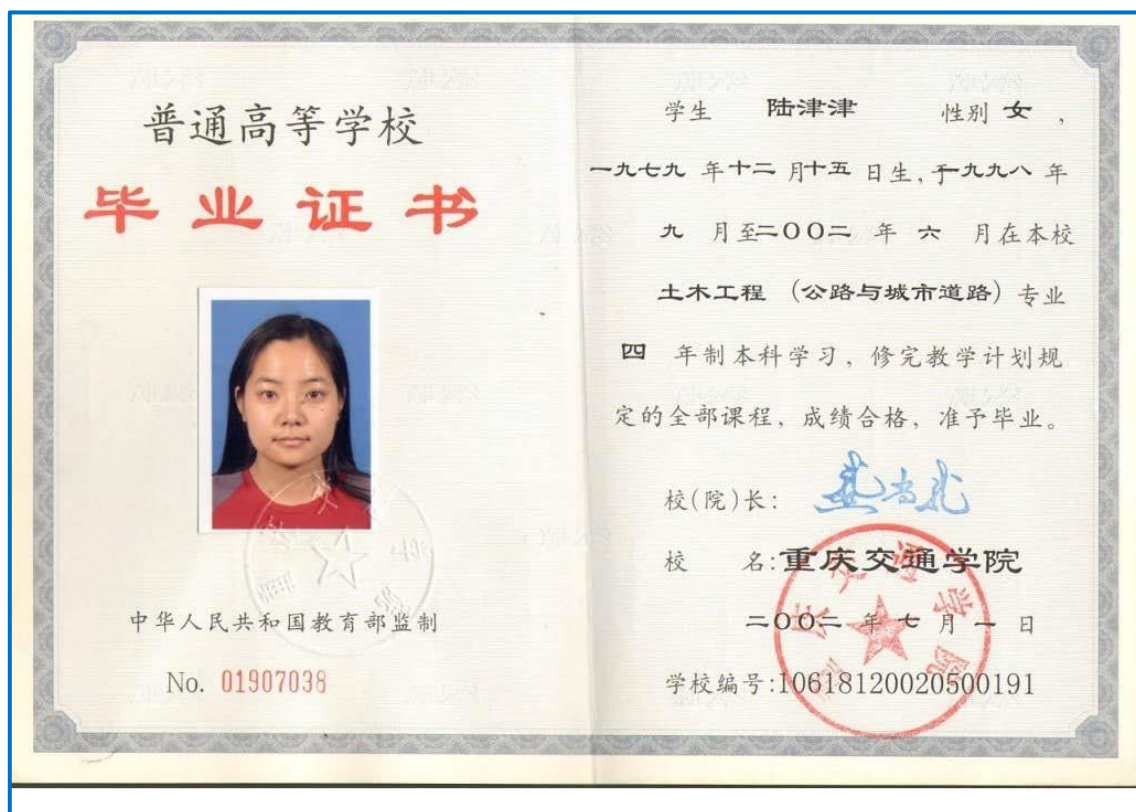 普通高等学校
毕业证书
中华人民共和国教育部监制
No. 01907038
学生 陆津津 性别 女，
一九七九 年十二月十五日生，于一九九八 年
九 月至二〇〇二 年 六 月在本校
土木工程 （公路与城市道路）专业
四 年制本科学习，修完教学计划规
定的全部课程，成绩合格，准予毕业。
校(院)长：
校 名:重庆交通学院
二〇〇二 年 七 月 一 日
学校编号:10618120020500191
重庆交通学院